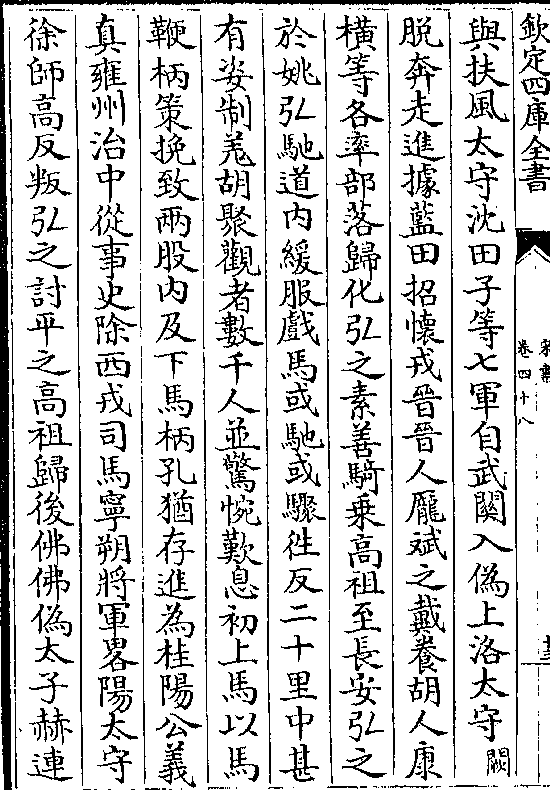 欽定四庫全書
宋書
卷四十八
與扶風太守沈田子等七軍自武關入偽上洛太守闕
脱奔走進據藍田招懷戎晉晉人龎斌之戴養胡人康
橫等各率部落歸化弘之素善騎乗高祖至長安弘之
於姚弘馳道内緩服戲馬或馳或驟往反二十里中甚
有姿制羌胡聚觀者數千人並驚惋歎息初上馬以馬
鞭柄策挽致兩股内及下馬柄孔猶存進為桂陽公義
真雍州治中從事史除西戎司馬寧朔將軍畧陽太守
徐師高反叛弘之討平之高祖歸後佛佛偽太子赫連